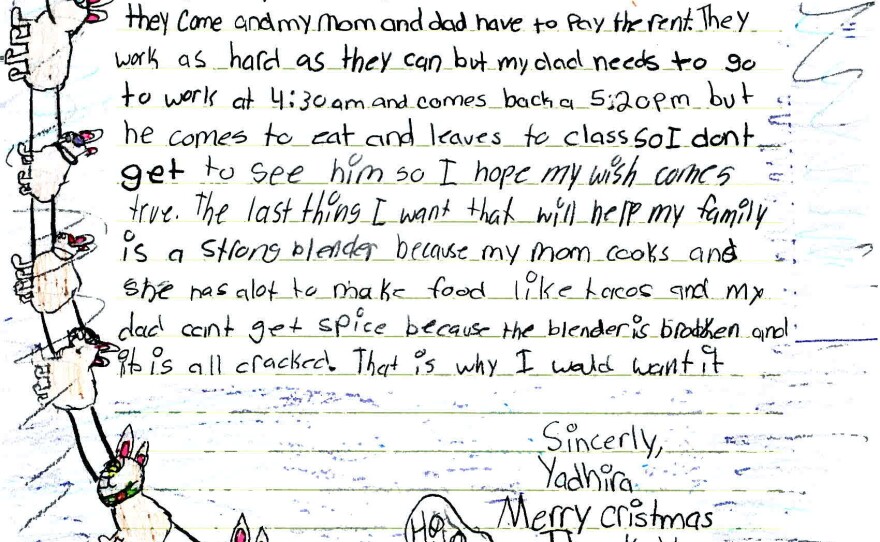 they come and my mom and dad have to pay the rent. They
work as hard as they can but my dad needs to go
to work at 4:30am and comes back a 5:20pm but
he comes to eat and leaves to class so I dont
get to see him so I hope my wish comes
true. The last thing I want that will help my family
is a strong blender because my mom cooks and
she has alot to make food like tacos and my
dad cant get spice because the blender is brocken and
it is all cracked. That is why I would want it
Sincerly,
Yadhira
Merry cristmas